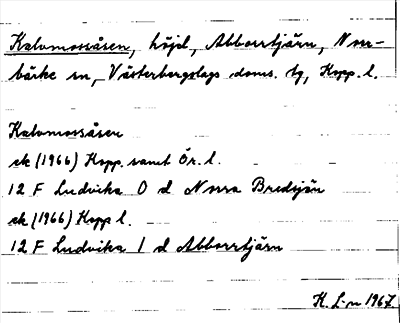 Kalvmossåsen, höjd, Abborrtjärn, Norr-
bärke sn, Västerbergslags doms. tg, Kopp. l.
Kalvmossåsen
ek (1966) Kopp. samt Ör. l.
12 F Ludvika 0 d Norra Bredsjön
ek (1966) Kopp l.
12 F Ludvika 1 d Abborrtjärn
K. L-n 1967